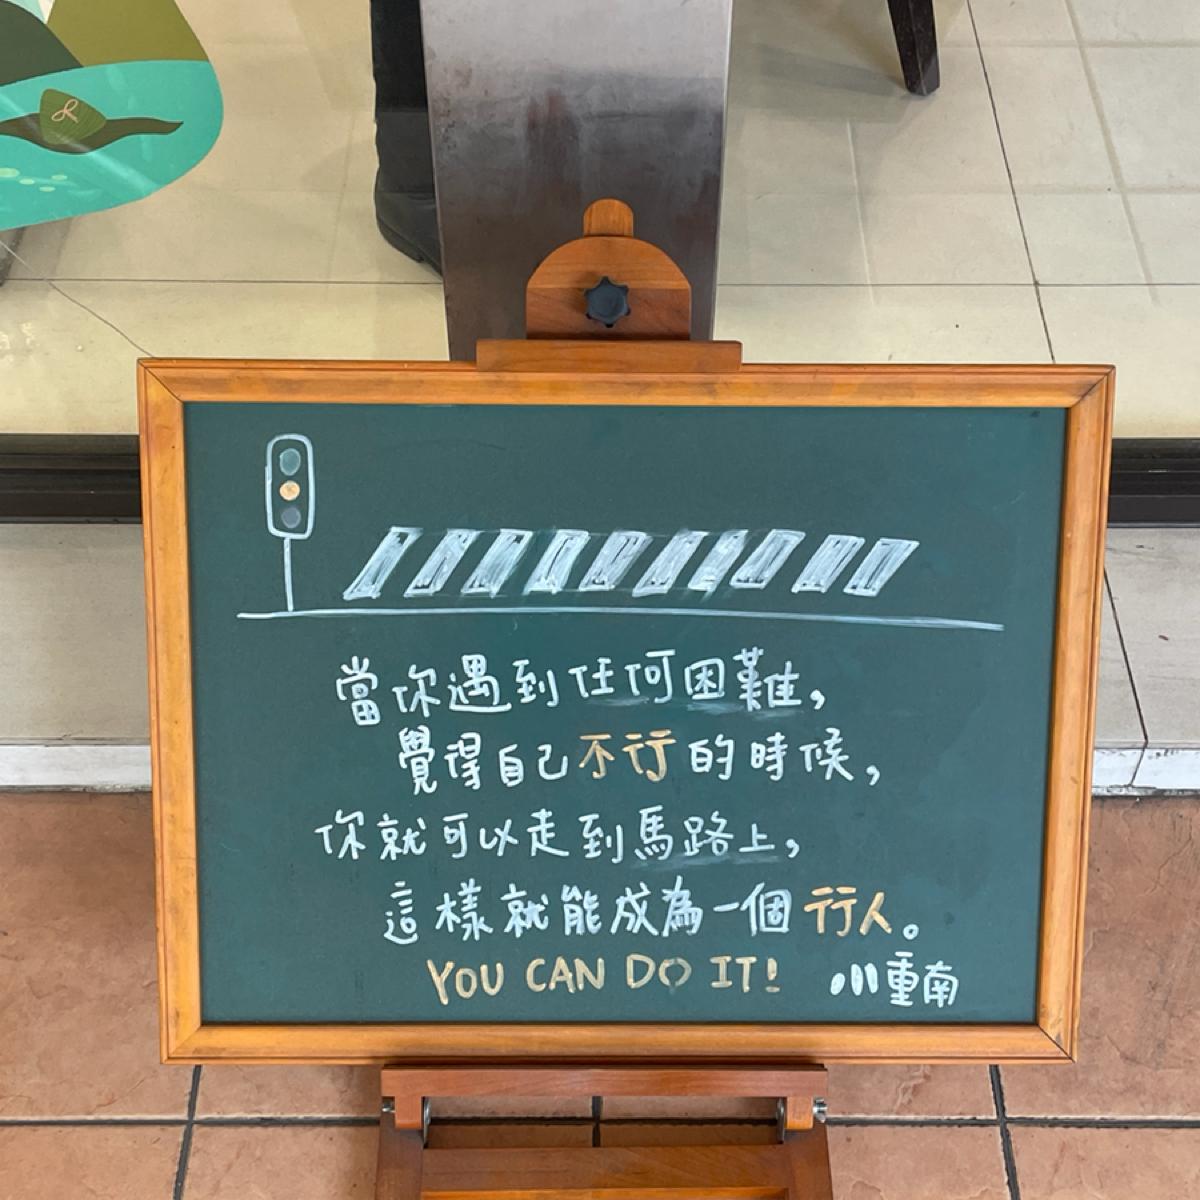 當你遇到任何困難，
覺得自己不行的時候，
你就可以走到馬路上，
這樣就能成為一個行人。
YOU CAN DO IT!
重南